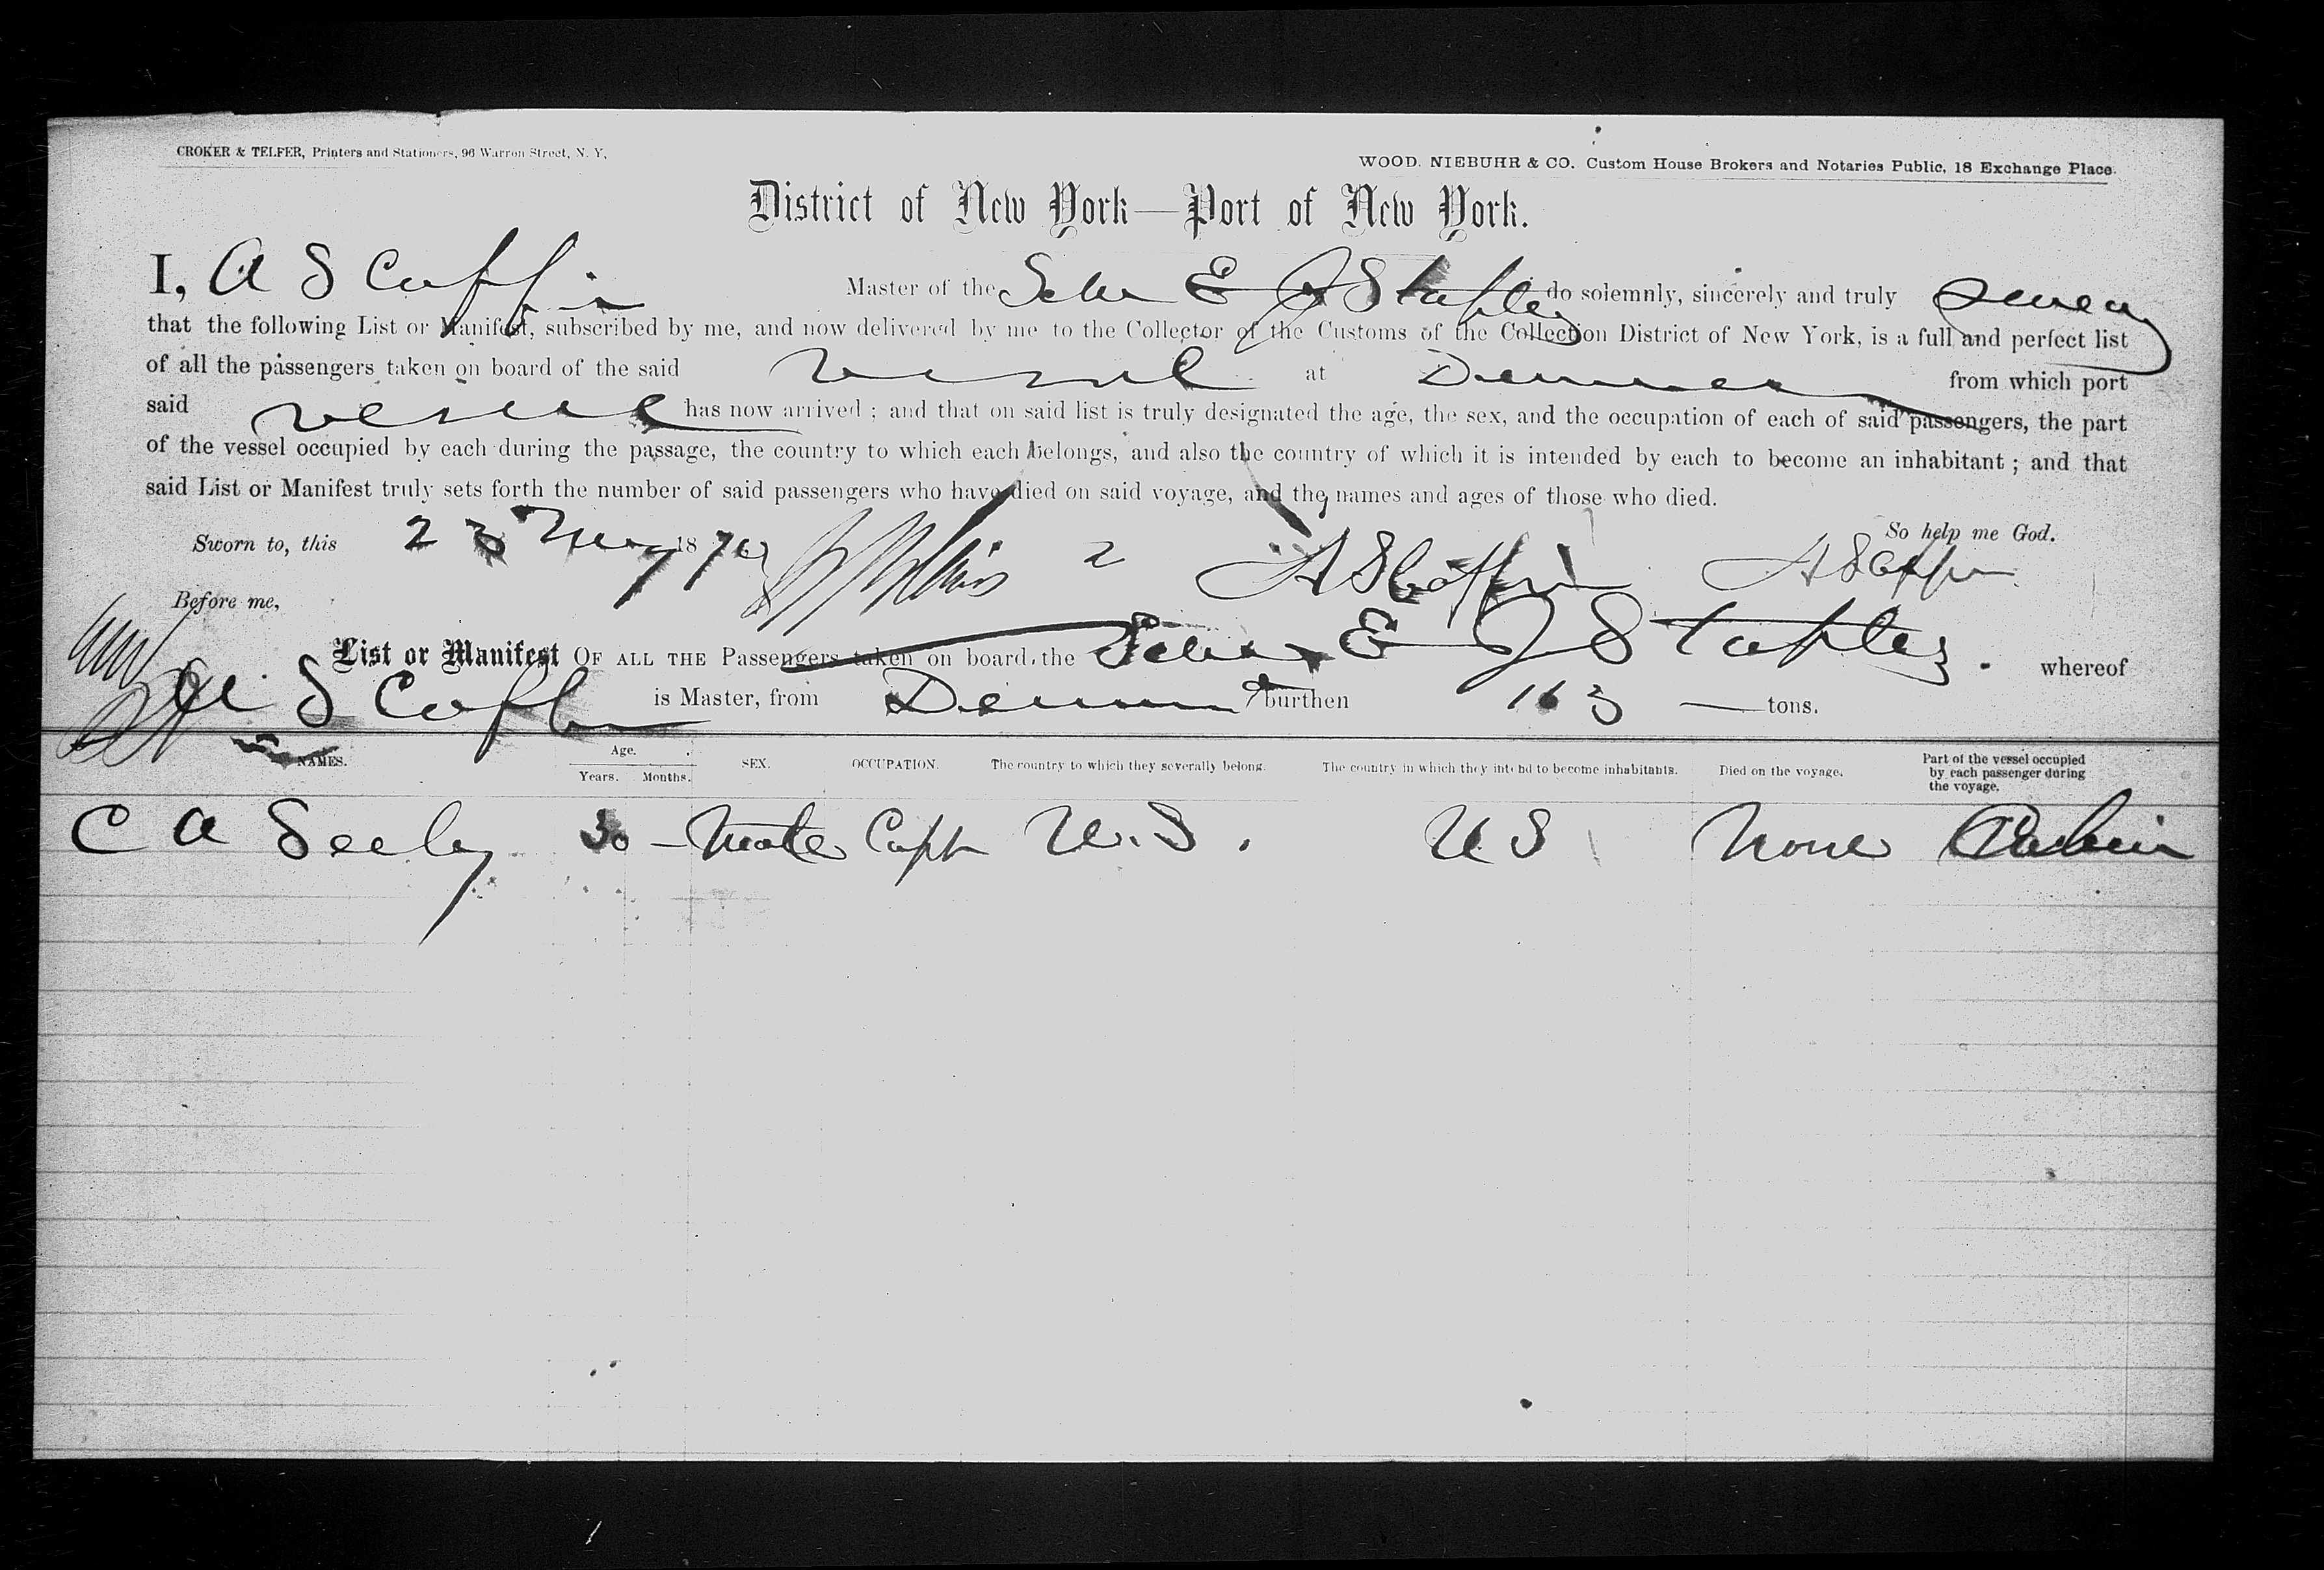 CROKER & TELFER, Printers and Stationers, 96 Warren Street, N. Y,
WOOD. NIEBUHR & CO. Custom House Brokers and Notaries Public, 18 Exchange Place.
District of New York—Port of New York.
I, A S Coffin Master of the Schr E J Staples do solemnly, sincerely and truly swear
that the following List or Manifest, subscribed by me, and now delivered by me to the Collector of the Customs of the Collection District of New York, is a full and perfect list
of all the passengers taken on board of the said vessel at from which port
said vessel has now arrived ; and that on said list is truly designated the age, the sex, and the occupation of each of said passengers, the part
of the vessel occupied by each during the passage, the country to which each belongs, and also the country of which it is intended by each to become an inhabitant ; and that
said List or Manifest truly sets forth the number of said passengers who have died on said voyage, and the names and ages of those who died.
So help me God.
Sworn to, this 23 May 18 A S Coffin A S Coffin
Before me,
List or Manifest OF ALL THE Passengers taken on board, the Schr E J Staples. whereof
A S Coffin is Master, from burthen 163 — tons.
NAMES. Age. Years. Months. SEX. OCCUPATION. The country to which they severally belong. The country in which they intend to become inhabitants. Died on the voyage. Part of the vessel occupied by each passenger during the voyage.
C A Seeley 30 – Male Capt U.S. U S None Cabin